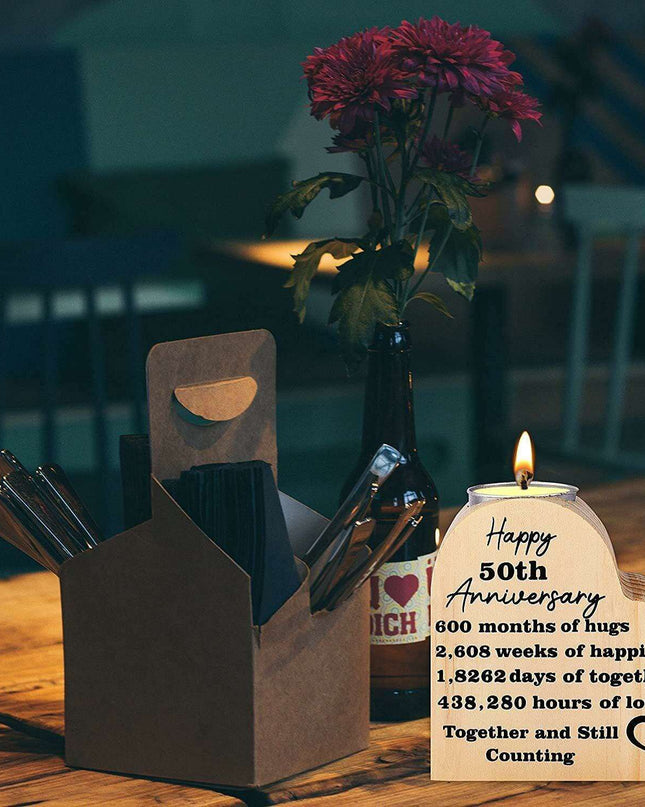 Happy
50th
Anniversary
600 months of hugs
2,608 weeks of happi
1,8262 days of togeth
438,280 hours of lo
Together and Still
Counting
DICH